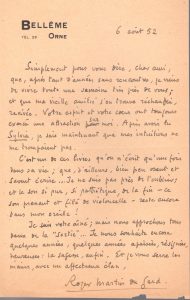 BELLÊME
TÉL. 29 ORNE
6 août 52
Simplement pour vous dire, cher ami,
que, après tant d'années sans rencontre, je viens
de vivre toute une semaine très près de vous;
et que ma vieille amitié s'en trouve réchauffée,
ravivée. Votre esprit et votre cœur ont toujours
exercé une attraction sur moi. Après avoir lu
Sylvia, je sais maintenant que mes intuitions ne
me trompaient pas.
C'est un de ces livres qu'on n'écrit qu'une fois
dans sa vie; que, d'ailleurs, bien peu osent et
savent écrire. Je ne suis pas près de l'oublier;
et le son si pur, si pathétique de la fin – ce
son prenant et filé de violoncelle – reste encore
dans mon oreille!
Je sais votre âge; mais nous approchons tous
deux de la "sortie". Je nous souhaite encore
quelques années, quelques années apaisées, résignées,
heureuses: la sagesse, enfin. Et je vous serre les
mains, avec une affectueuse élan,
Roger Martin du Gard.